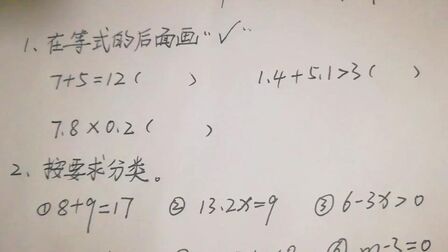 1、在等式的后面画“√”
7+5=12（ ） 1.4+5.1>3（ ）
7.8×0.2（ ）
2、按要求分类。
①8+9=17 ② 13.2x=9 ③ 6-3x>0
⑥ m-3=0